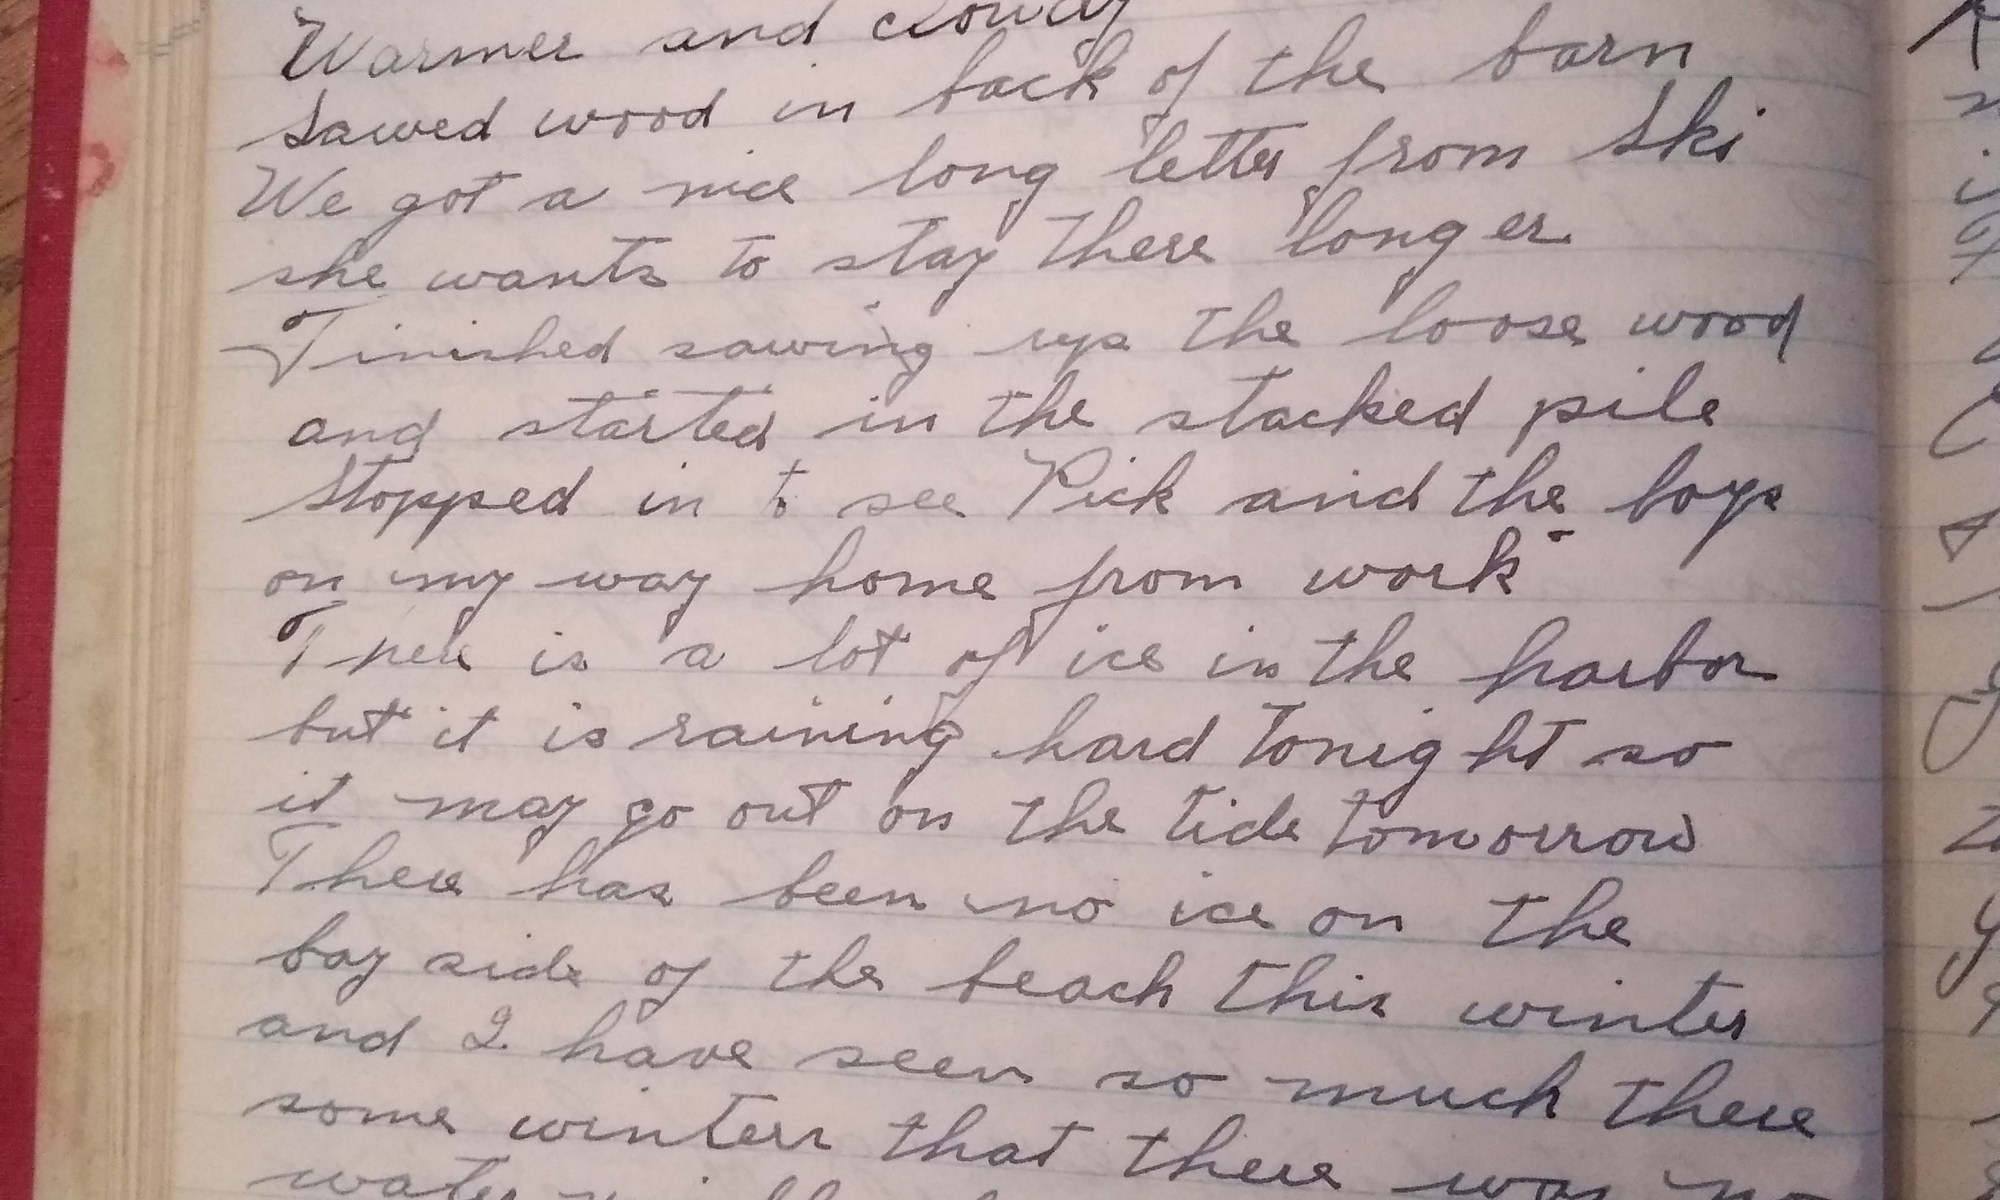 Warmer and cloudy
Sawed wood in back of the barn
We got a nice long letter from Ski
she wants to stay there longer
Finished sawing up the loose wood
and started in the stacked pile
Stopped in to see Pick and the boys
on my way home from work
There is a lot of ice in the harbor
but it is raining hard tonight so
it may go out on the tide tomorrow
There has been no ice on the
bay side of the beach this winter
and I have seen so much there
some winters that there was no
water